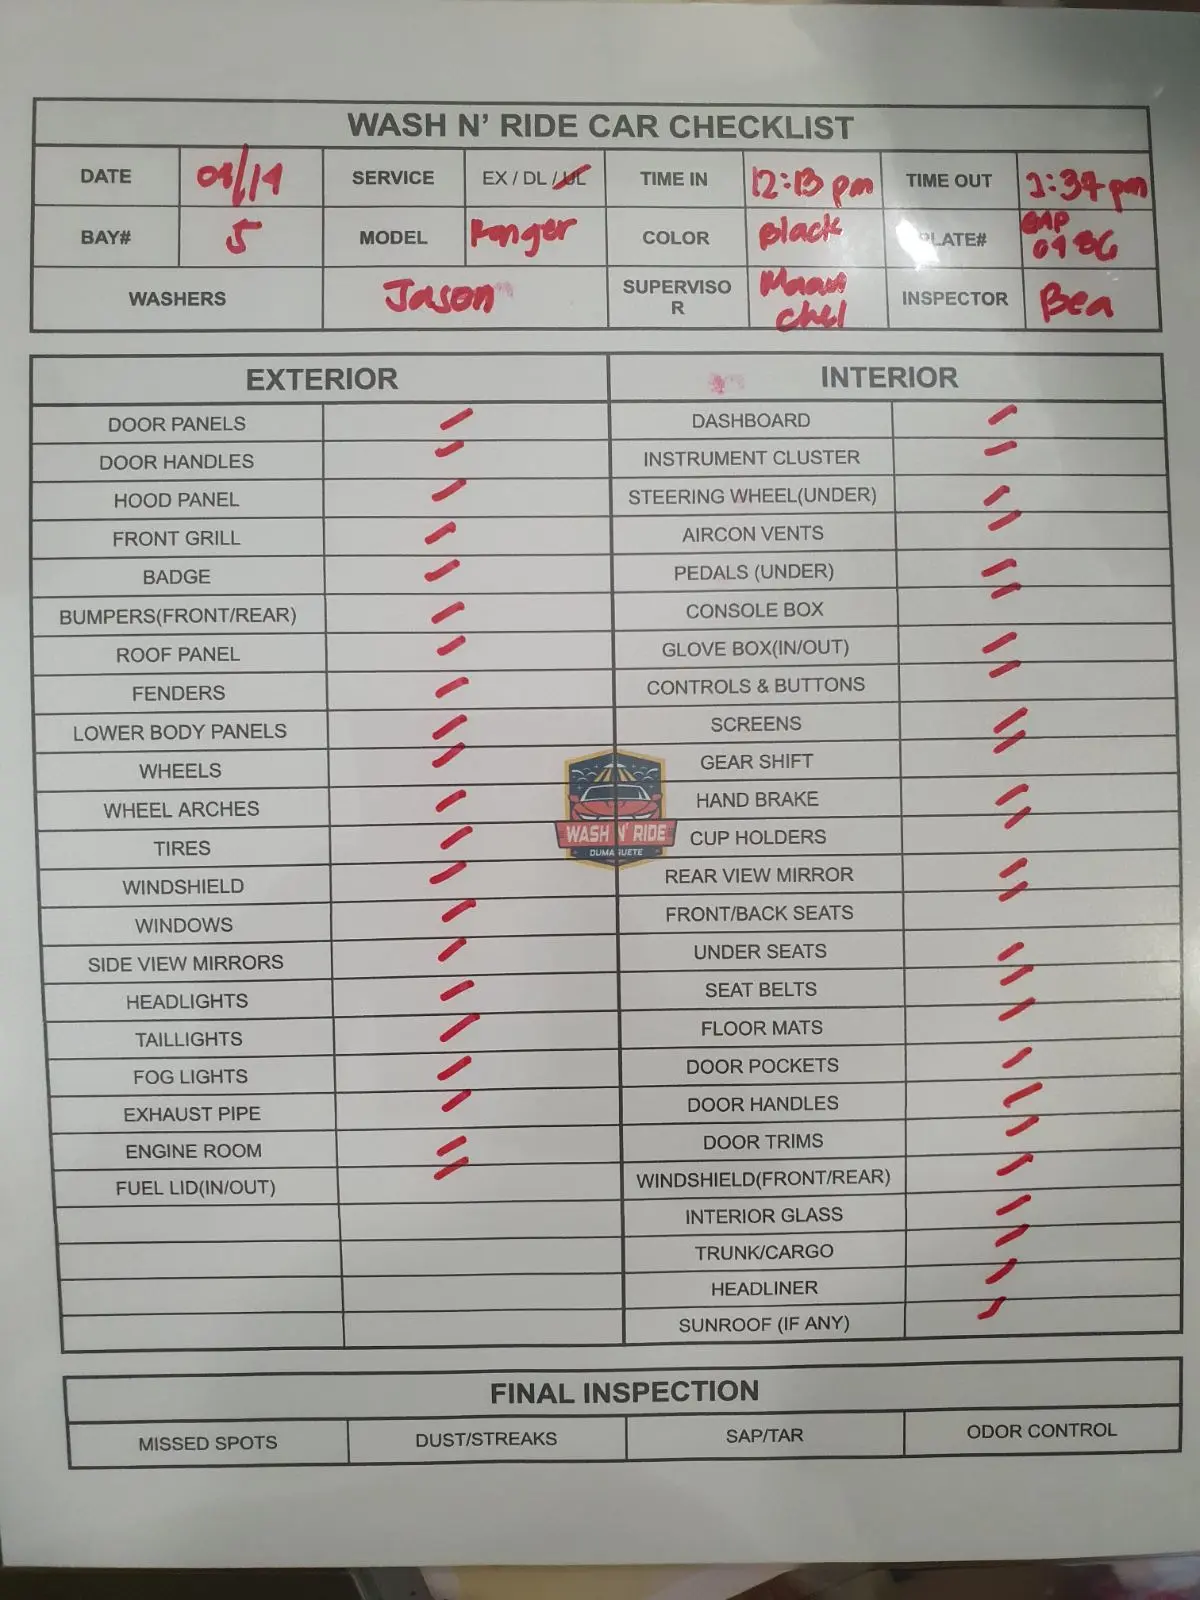 WASH N' RIDE CAR CHECKLIST
DATE 04/19 SERVICE EX / DL / UL TIME IN 12:13 pm TIME OUT 2:34 pm
BAY# 5 MODEL Ranger COLOR Black PLATE#
WASHERS Jason SUPERVISO
R Maam
chel INSPECTOR Bea
EXTERIOR INTERIOR
DOOR PANELS DASHBOARD
DOOR HANDLES INSTRUMENT CLUSTER
HOOD PANEL STEERING WHEEL(UNDER)
FRONT GRILL AIRCON VENTS
BADGE PEDALS (UNDER)
BUMPERS(FRONT/REAR) CONSOLE BOX
ROOF PANEL GLOVE BOX(IN/OUT)
FENDERS CONTROLS & BUTTONS
LOWER BODY PANELS SCREENS
WHEELS GEAR SHIFT
WHEEL ARCHES HAND BRAKE
TIRES CUP HOLDERS
WASH N' RIDE
DUMAGUETE
WINDSHIELD REAR VIEW MIRROR
WINDOWS FRONT/BACK SEATS
SIDE VIEW MIRRORS UNDER SEATS
HEADLIGHTS SEAT BELTS
TAILLIGHTS FLOOR MATS
FOG LIGHTS DOOR POCKETS
EXHAUST PIPE DOOR HANDLES
ENGINE ROOM DOOR TRIMS
FUEL LID(IN/OUT) WINDSHIELD(FRONT/REAR)
INTERIOR GLASS
TRUNK/CARGO
HEADLINER
SUNROOF (IF ANY)
FINAL INSPECTION
MISSED SPOTS DUST/STREAKS SAP/TAR ODOR CONTROL